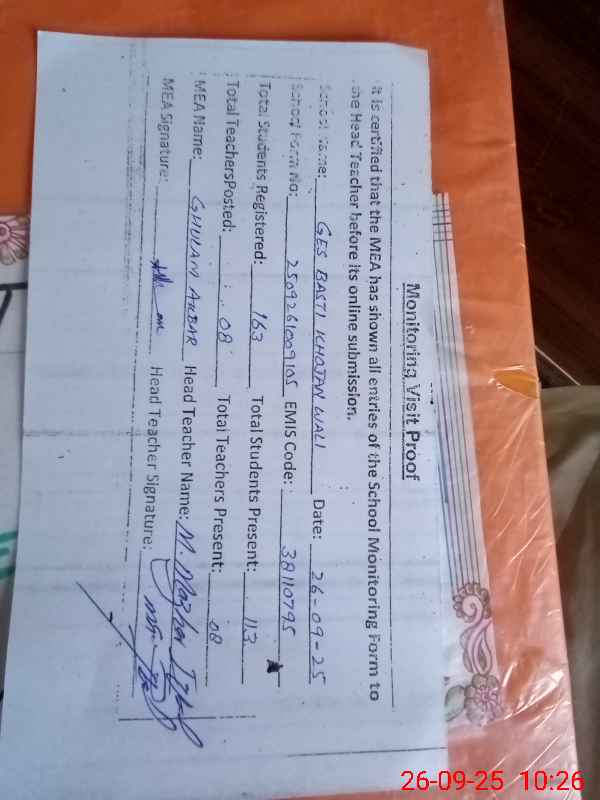 Monitoring Visit Proof
It is certified that the MEA has shown all entries of the School Monitoring Form to
the Head Teacher before its online submission.
School Name: GES BASTI KHOJAN WALI Date: 26-09-25
School Form No: 2509261009105 EMIS Code: 38110795
Total Students Registered: 163 Total Students Present: 113
Total TeachersPosted: 08 Total Teachers Present: 08
MEA Name: GHULAM AKBAR Head Teacher Name: M. Mazhar Iqbal
MEA Signature: Head Teacher Signature:
26-09-25 10:26